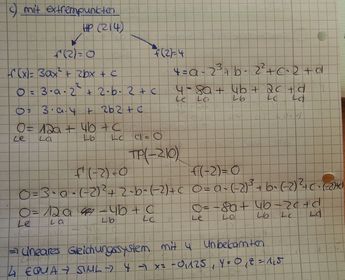 c) mit extrempunkten
HP (2|4)
f'(2)=0
f(2)=4
f'(x)= 3ax² + 2bx + c
4 = a · 2³ + b · 2² + c · 2 + d
0 = 3 · a · 2² + 2 · b · 2 + c
4 = 8a + 4b + 2c + d
Le La Lb Lc Ld
0 = 3 · a · 4 + 2b2 + c
0 = 12a + 4b + c
Le La Lb Lc d=0
TP(-2|0)
f'(-2)=0
f(-2)=0
0 = 3 · a · (-2)² + 2 · b · (-2) + c
0 = a · (-2)³ + b · (-2)² + c · (-2) + d
0 = 12a -4b + c
Le La Lb Lc
0 = -8a + 4b - 2c + d
Le La Lb Lc Ld
⇒ Lineares Gleichungssystem mit 4 Unbekannten
↳ EQUA → SIML → 4 → x = -0,125, y = 0, z = 1,5